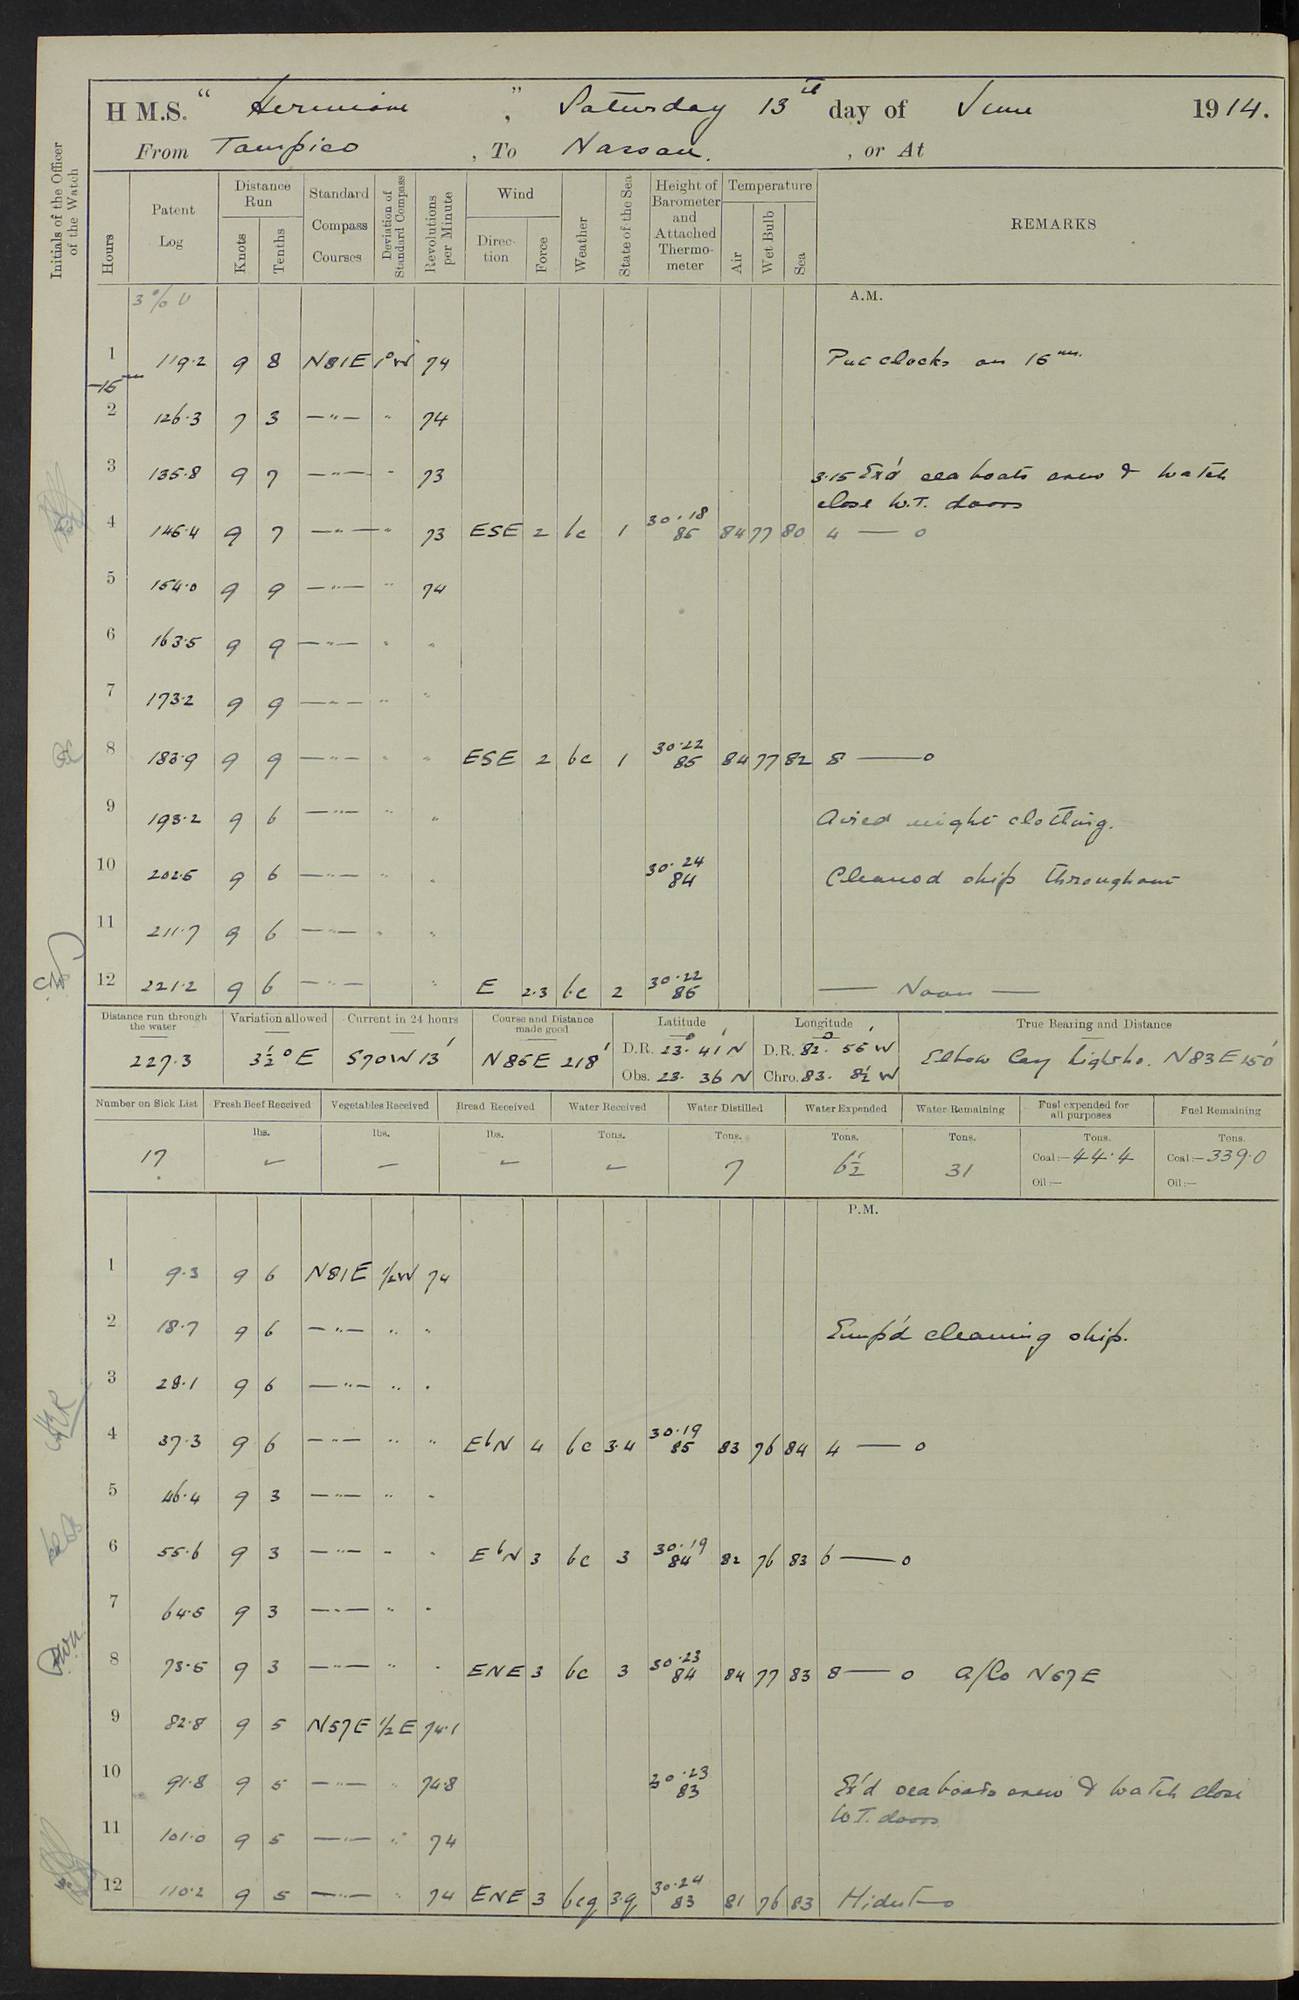 H M.S. " Hermione " , Saturday 13th day of June 1914.
From Tampico , To Nassau. , or At
Initials of the Officer of the Watch
Hours
Patent Log
Distance Run
Knots
Tenths
Standard Compass Courses
Deviation of Standard Compass
Revolutions per Minute
Wind
Direction
Force
Weather
State of the Sea
Height of Barometer and Attached Thermometer
Temperature
Air
Wet Bulb
Sea
REMARKS
3 % U
A.M.
1 119.2 9 8 N81E 1°W 74 Put clocks on 15 ms.
-15 ms
2 126.3 7 3 —"— " 74
3 135.8 9 7 —"— " 73 3.15 Ex'd sea boats crew & watch
close W.T. doors
4 145.4 9 7 —"— " 73 ESE 2 bc 1 30.18 85 84 77 80 4 — 0
5 154.0 9 9 —"— " 74
6 163.5 9 9 —"— " "
7 173.2 9 9 —"— " "
8 183.9 9 9 —"— " " ESE 2 bc 1 30.22 85 84 77 82 8 — 0
9 193.2 9 6 —"— " " Aired night clothing.
10 202.5 9 6 —"— " " 30.24 84 Cleaned ship throughout
11 211.7 9 6 —"— " "
12 221.2 9 6 —"— " E 2.3 bc 2 30.22 86 — Noon —
Distance run through the water
227.3
Variation allowed
3½°E
Current in 24 hours
S70W 13'
Course and Distance made good
N86E 218'
Latitude
D.R. 23° 41' N
Obs. 23. 36 N
Longitude
D.R. 82° 55' W
Chro. 83. 8½ W
True Bearing and Distance
Elbow Cay Lightho. N83E 150'
Number on Sick List
17
Fresh Beef Received
lbs.
Vegetables Received
lbs.
—
Bread Received
lbs.
Water Received
Tons.
Water Distilled
Tons.
7
Water Expended
Tons.
6½
Water Remaining
Tons.
31
Fuel expended for all purposes
Tons.
Coal:— 44.4
Oil:—
Fuel Remaining
Tons.
Coal:— 339.0
Oil:—
P.M.
1 9.3 9 6 N81E ½W 74
2 18.7 9 6 —"— " " Emp'd cleaning ship.
3 28.1 9 6 —"— " "
4 37.3 9 6 —"— " " EbN 4 bc 3.4 30.19 85 83 76 84 4 — 0
5 46.4 9 3 —"— " "
6 55.6 9 3 —"— " " EbN 3 bc 3 30.19 84 82 76 83 6 — 0
7 64.5 9 3 —"— " "
8 73.5 9 3 —"— " " ENE 3 bc 3 30.23 84 84 77 83 8 — 0 a/Co N57E
9 82.8 9 5 N57E ½E 74.1
10 91.8 9 5 —"— " 74.8 30.23 83 Ex'd sea boats crew & watch close
W.T. doors
11 101.0 9 5 —"— " 74
12 110.2 9 5 —"— " 74 ENE 3 bcq 3.q 30.24 83 81 76 83